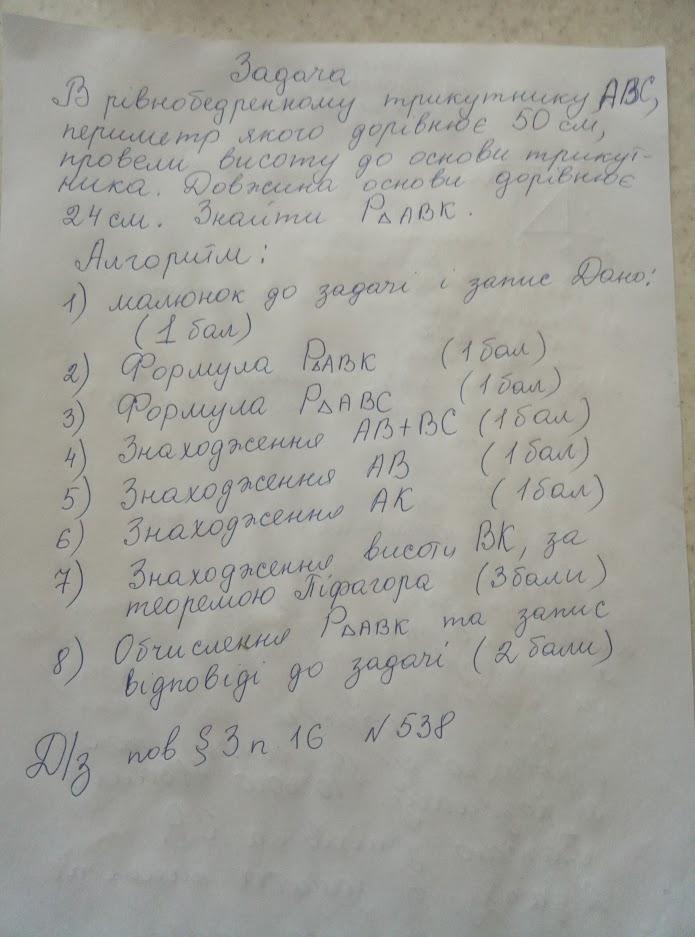 Задача
В рівнобедренному трикутнику ABC,
периметр якого дорівнює 50 см,
провели висоту до основи трикут-
ника. Довжина основи дорівнює
24 см. Знайти P△ABK.
Алгоритм:
1) малюнок до задачі і запис Дано:
(1 бал)
2) Формула P△ABK (1 бал)
3) Формула P△ABC (1 бал)
4) Знаходження AB+BC (1 бал)
5) Знаходження AB (1 бал)
6) Знаходження AK (1 бал)
7) Знаходження висоти BK, за
теоремою Піфагора (3 бали)
8) Обчислення P△ABK та запис
відповіді до задачі (2 бали)
Д/з пов § 3 п 16 N 538